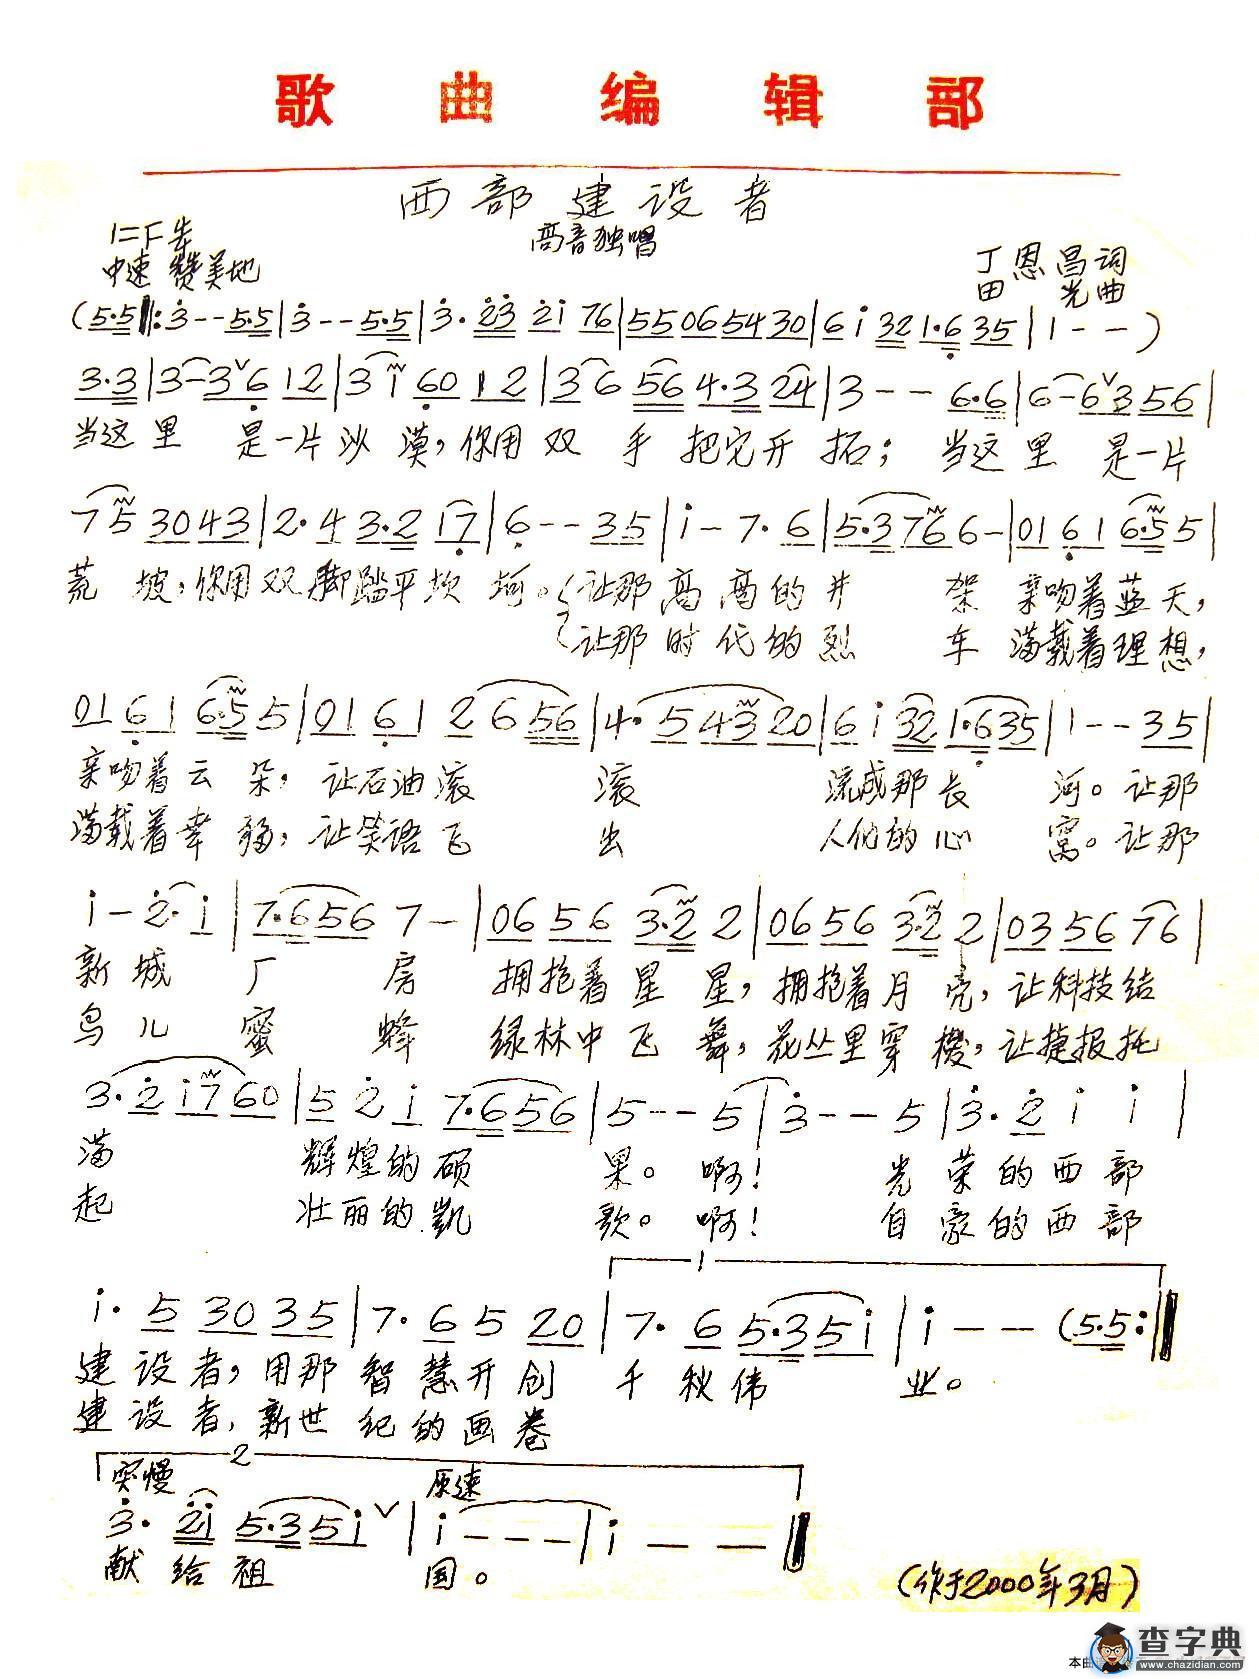 歌曲编辑部
西部建设者
高音独唱
1=F 4/4
中速 赞美地
丁恩昌词
田光曲
(5·5‖:3--5·5|3--5·5|3·23 21 76|55065430|6i 32 1·6 35|1--)
3·3|3-3 6 12|3 1 60 12|3 6 56 4·3 24|3--6·6|6-6 3 56|
当这里 是一片沙漠，你用双 手把它开拓；当这里 是一片
75 3043|2·4 3·2 17|6--35|i-7·6|5·376 6-|0161 6·5 5|
荒坡，你用双脚踏平坎坷。让那高高的井 架 亲吻着蓝天，
让那时代的烈 车 满载着理想，
0161 6·5 5|0161 2 6 56|4·5 43 20|6i 32 1·6 35|1--35|
亲吻着云朵，让石油滚 滚 流成那长 河。让那
满载着幸福，让笑语飞 出 人们的心 窝。让那
i-2·i|7·656 7-|0656 3·2 2|0656 3·2 2|0356 76|
新城厂 房 拥抱着星星，拥抱着月亮，让科技结
鸟儿蜜 蜂 绿林中飞舞，花丛里穿梭，让捷报托
3·2 i7 60|5 2 i 7·656|5--5|3--5|3·2 i i|
满 辉煌的硕 果。啊！ 光荣的西部
起 壮丽的凯 歌。啊！ 自豪的西部
1
i·5 30 35|7·6 5 20|7·6 5·35i|i--(5·5:‖
建设者，用那智慧开创千秋伟 业。
建设者，新世纪的画卷
2
突慢 原速
3·2i 5·35i|i---|i--‖
献给祖 国。
(作于2000年3月)
本曲
查字典
www.chazidian.com